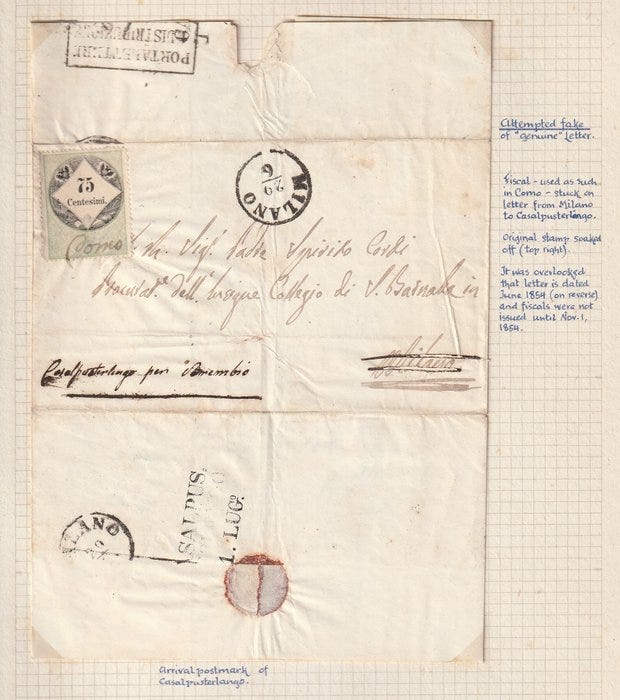 PORTALETTERE
DISTRIBUZIONE
Attempted fake
of "genuine" Letter.
Fiscal - used as such
in Como - stuck on
letter from Milano
to Casalpusterlango.
Original stamp soaked
off (top right).
It was overlooked
that letter is dated
June 1854 (on reverse)
and fiscals were not
issued until Nov. 1,
1854.
75
Centesimi.
Como
MILANO
29
6
Sigr Padre Spirido Cordi
Procuratre dell'Insigne Collegio di S. Barnaba in
Milano
Casalpusterlengo per Brembio
LANO
SALPUS.
1. LUGO.
Arrival postmark of
Casalpusterlango.